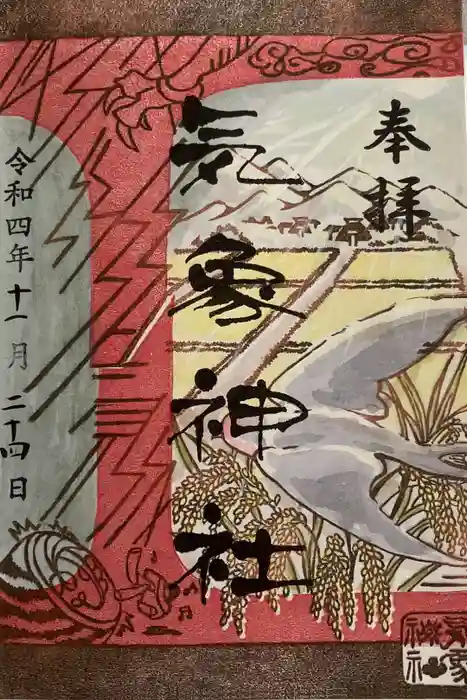 奉拝
気象神社
令和四年十一月二十四日
気象
神社